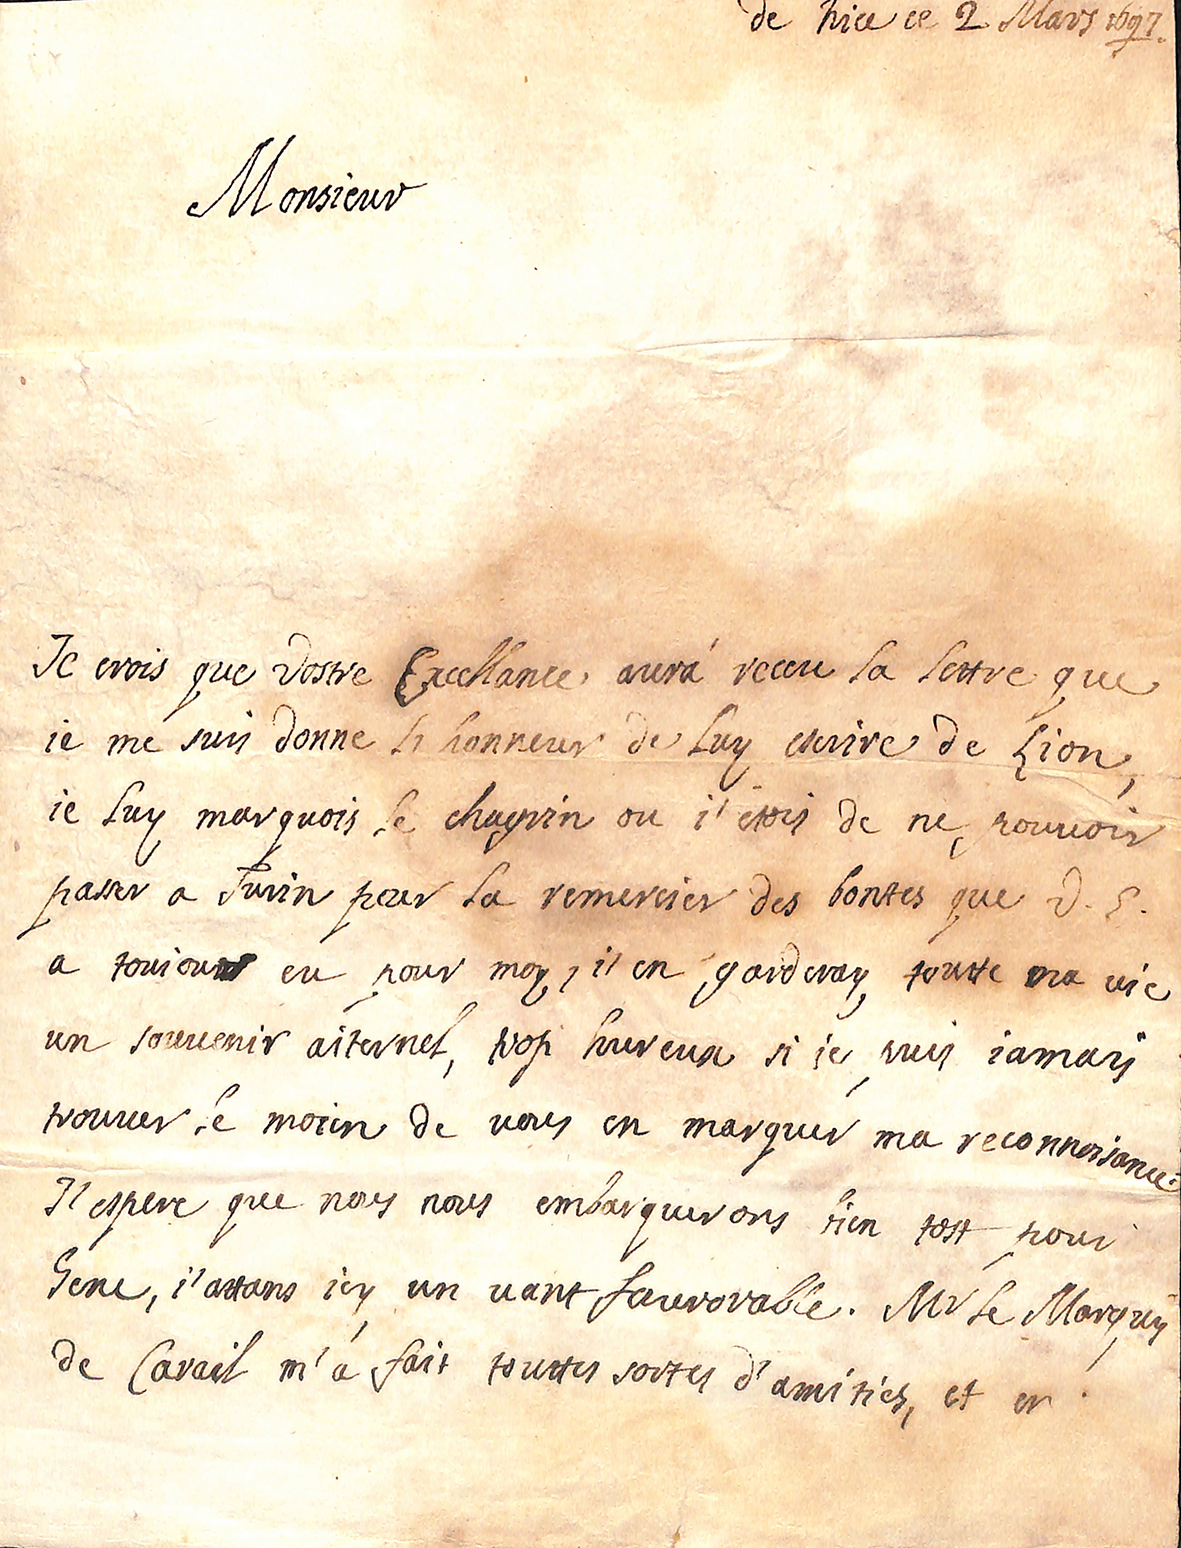 de Nice ce 2 Mars 1697.
Monsieur
Je crois que Vostre Excellance aurá receu la lettre que
ie me suis donne l'honneur de luy escrire de Lion,
ie luy marquois le chagrin ou i'etois de ne pouvoir
passer a Turin pour la remercier des bontes que V. E.
a toujours eu pour moy, i'en garderay toutte ma vie
un souvenir aiternel, trop hureux si ie puis iamais
trouver le moien de vous en marquer ma reconnoisance.
J'espere que nous nous embarquerons bien tost pour
Gene, i'attans icy un vant favorable. Mr le Marquis
de Carail m'a fait touttes sortes d'amities, et en